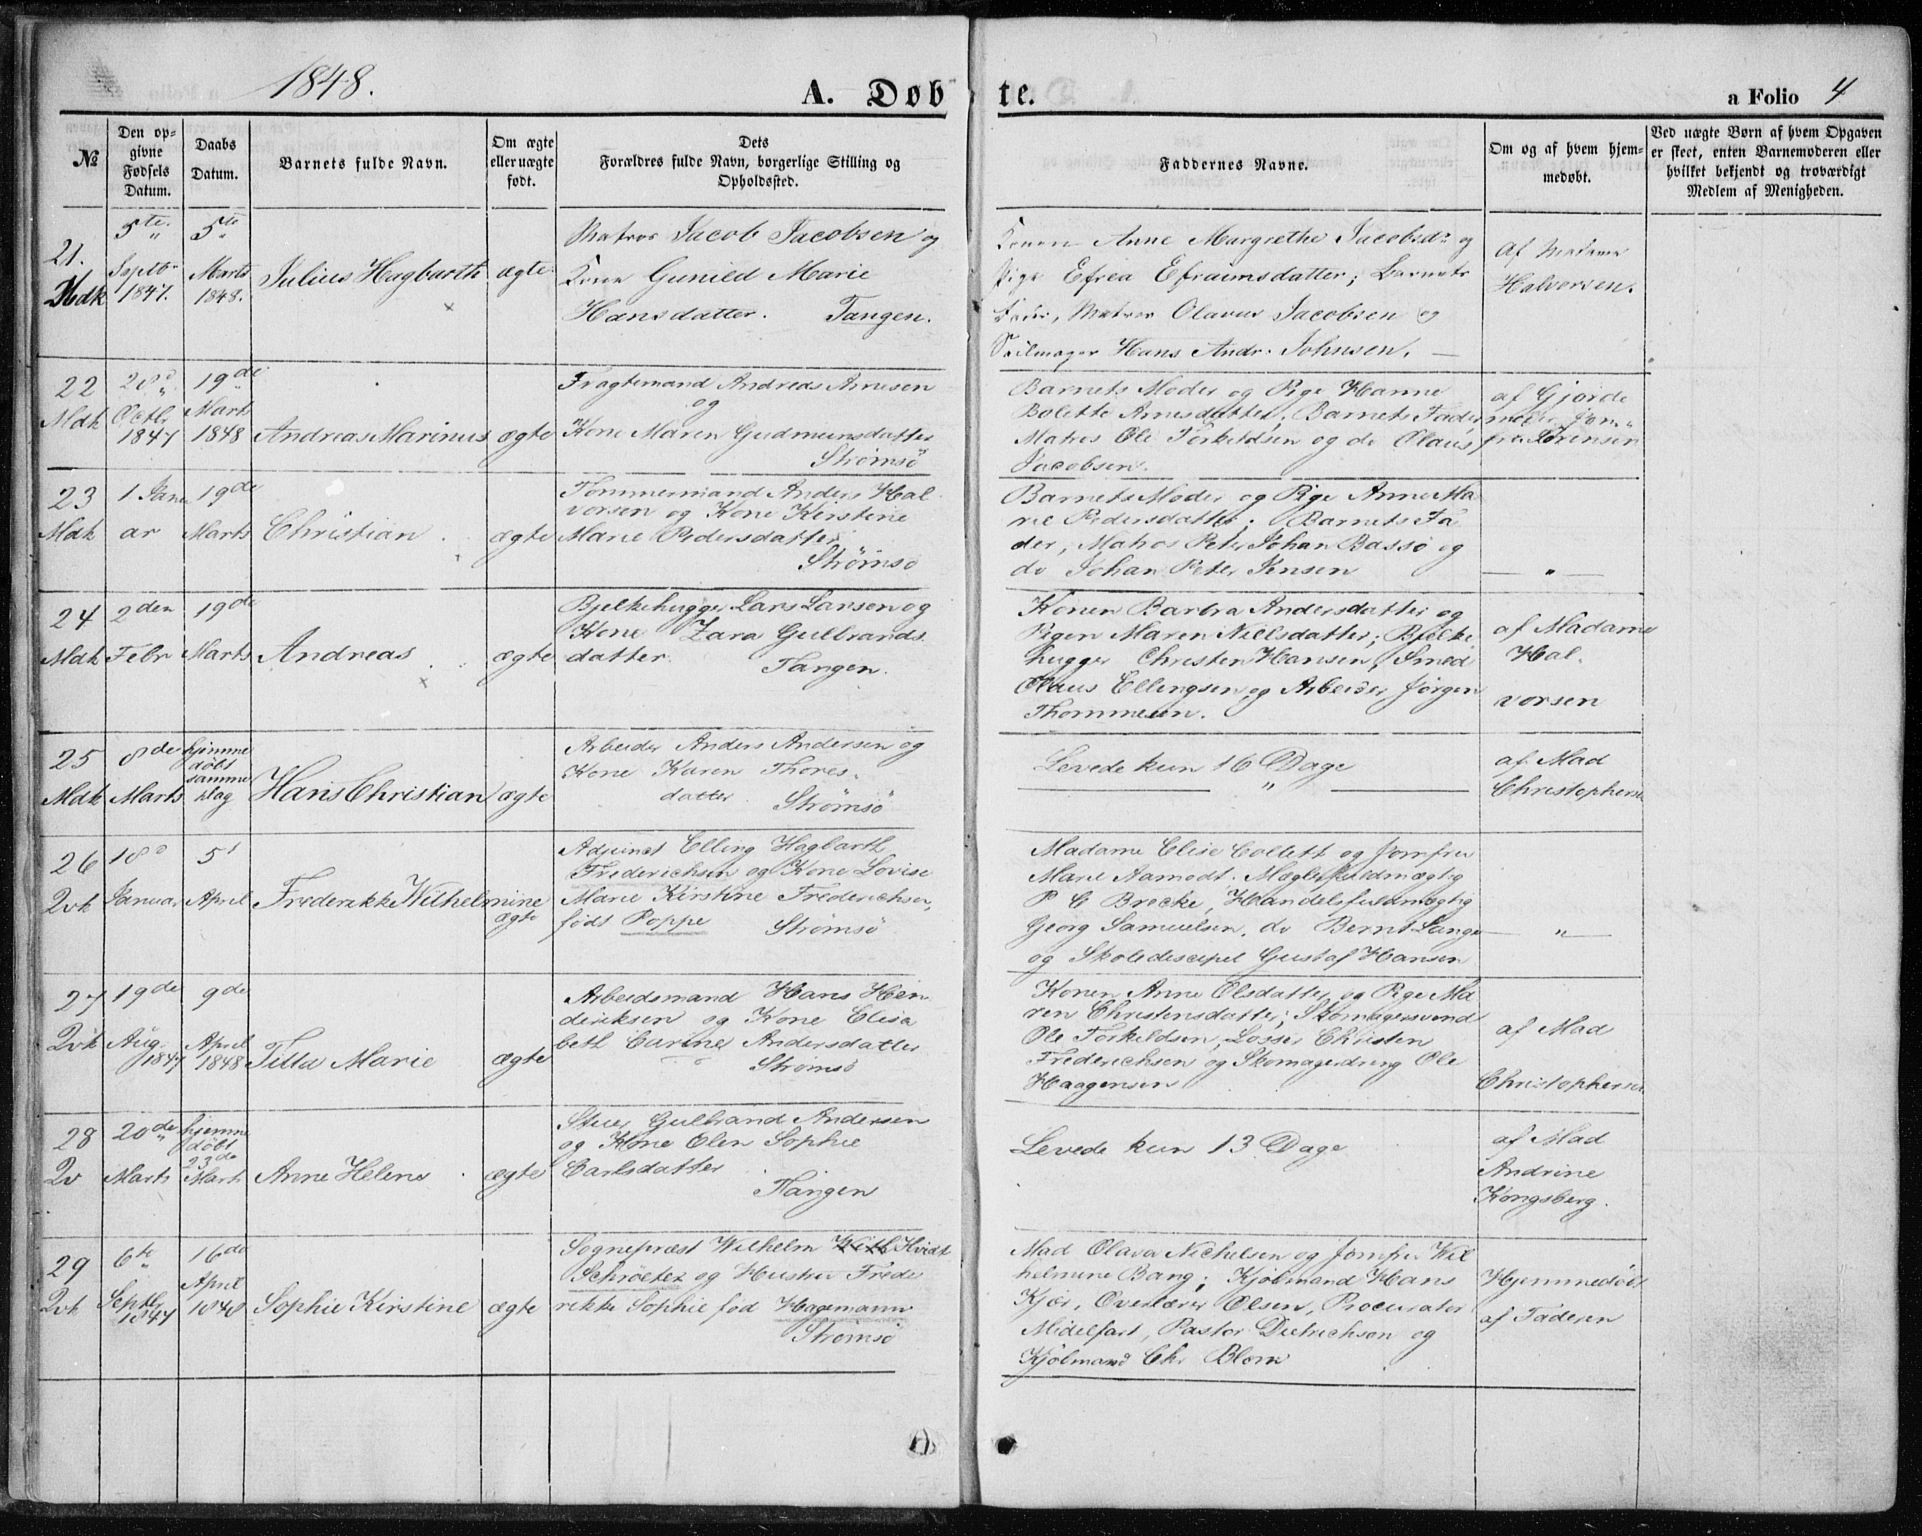 1848.
A. Døb te.
a Folio 4
№
Den op-
givne
Fødsels
Datum.
Daabs
Datum.
Barnets fulde Navn.
Om ægte
eller uægte
født.
Dets
Forældres fulde Navn, borgerlige Stilling og
Opholdssted.
Faddernes Navne.
Om og af hvem hjem-
medøbt.
Ved uægte Børn af hvem Opgaven
er skeet, enten Barnemoderen eller
hvilket bekjendt og troværdigt
Medlem af Menigheden.
21.
Mdk
5te
Septbr
1847.
5te
Marts
1848.
Julius Hagbarth
ægte
Matros Jacob Jacobsen og
Kone Gunild Marie
Hansdatter. Tangen.
Konen Anne Margrethe Jacobsdr og
Pige Efrea Efraimsdatter; Barnets
Fader, Matros Olavus Jacobsen og
Seilmager Hans Andr. Johnsen.
Af Madame
Halvorsen.
22
Mdk
28d
Octbr
1847
19de
Marts
1848
Andreas Marinus
ægte
Fragtemand Andreas Arnesen
og
Kone Maren Gudmunsdatter
Strømsö
Barnets Moder og Pige Hanne
Bolette Arnesdatter; Barnets Fader
Matros Ole Torkeldsen og do Olaus
Jacobsen.
af Gjorde
moder Jom-
fru Sørensen
23
Mdk
1 Janu
ar
19de
Marts
Christian
ægte
Tømmermand Anders Hal
vorsen og Kone Kirstine
Marie Pedersdatter
Strømsø
Barnets Moder og Pige Anne Ma
rie Pedersdatter; Barnets Fa
der, Matros Peter Johan Bassö og
do Johan Peter Jensen
— " —
24
Mdk
2den
Febr
19de
Marts
Andreas
ægte
Bjelkehugger Lars Larsen og
Kone Zara Gulbrands
datter. Tangen.
Konen Barbra Andersdatter og
Pigen Maren Nielsdatter; Bjelke
hugger Christen Hansen, Smed
Olaus Ellingsen og Arbeider Jørgen
Thommesen.
af Madame
Hal-
vorsen
25
Mdk
8de
Marts
hjemme
döbt
samme
dag
Hans Christian
ægte
Arbeider Anders Andersen og
Kone Karen Thores-
datter Strømsö
Levede kun 16 Dage
— " —
af Mad
Christophersen
26
Qvk
18d
Januar
5t
April
Frederikke Wilhelmine
ægte
Adjunct Elling Hagbarth
Frederichsen og Kone Lovise
Marie Kirstine Frederichsen,
født Poppe Strømsö
Madame Elise Collett og Jomfru
Marie Aamodt. Mæglerfuldmægtig
P C Brocke, Handelsfuldmægtig
Georg Samuelsen, do Bernt Lange
og Skoledisciepel Gustaf Hansen
— " —
27
Qvk
19de
Aug.
1847
9de
April
1848
Tilla Marie
ægte
Arbeidsmand Hans Hen
driksen og Kone Elisa
beth Carine Andersdatter
Strømsö
Konen Anne Olsdatter og Pige Ma
ren Christensdatter; Skomagersvend
Ole Torkildsen, Losser Christen
Frederichsen og Skomagerdreng Ole
Haagensen
af Mad
Christophersen
28
Qv
20de
Marts
hjemme
döbt
23de
Marts
Anne Helene
ægte
Stuer Gulbrand Andersen
og Kone Olen Sophie
Carlsdatter
Tangen
Levede kun 13 Dage
af Mad
Andrine
Kongsberg.
29
Qvk
6te
Septbr
1847
16de
April
1848
Sophie Kirstine
ægte
Sognepræst Wilhelm Hvidt
Schröeter og Hustru Frede
rikke Sophie fød Hagemann
Strømsö
Mad Olava Nichelsen og Jomfru Wil
helmine Bang; Kjölmand Hans
Kjær, Overlærer Olsen, Procurator
Midelfart, Pastor Dietrichson og
Kjölmand Chr Blom
Hjemmedöbt
af Faderen